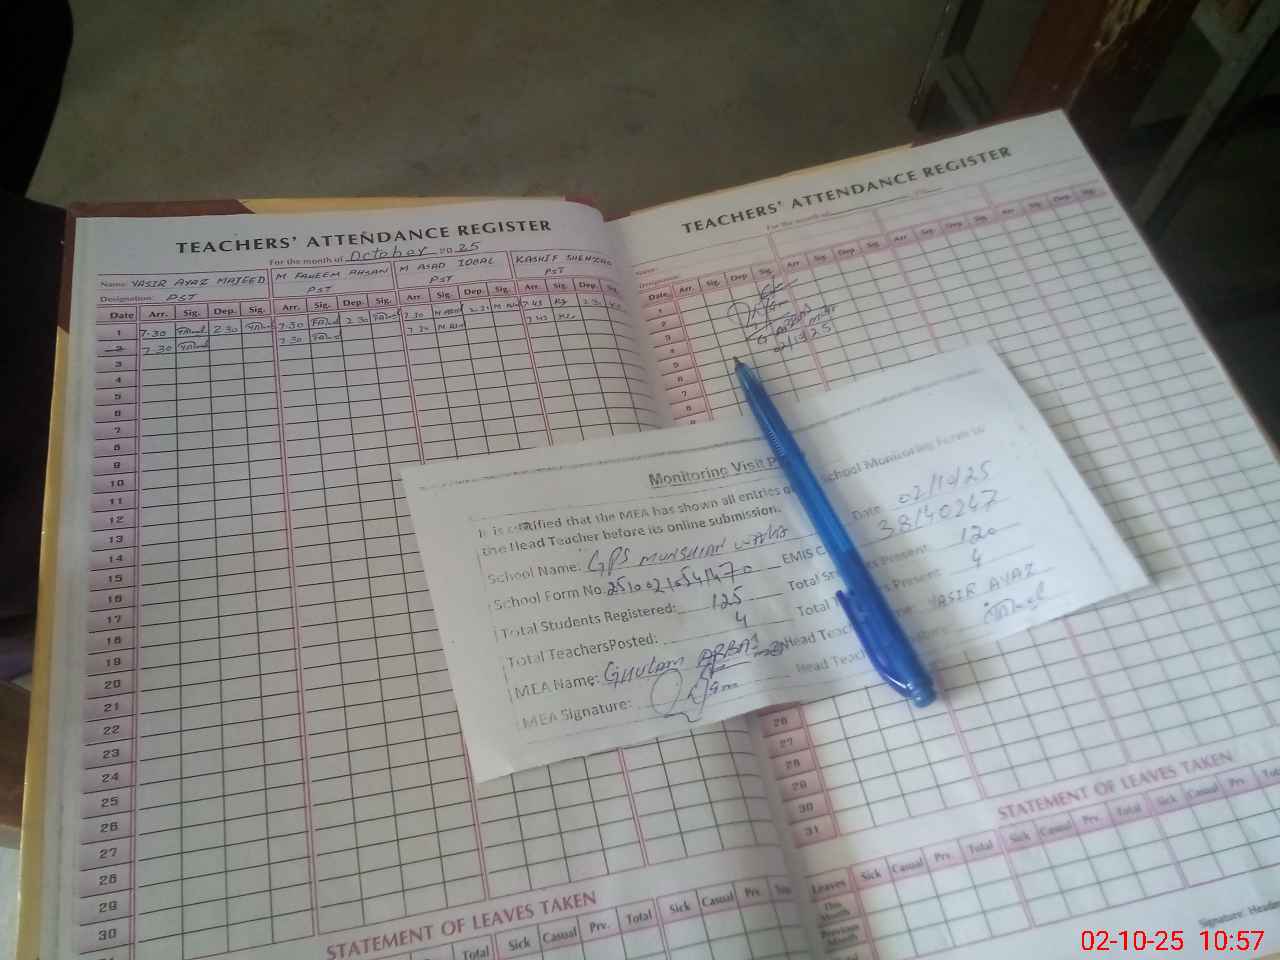 TEACHERS' ATTENDANCE REGISTER
For the month of October 2025
Name: YASIR AYAZ MAJEED M FAHEEM AHSAN M ASAD IQBAL KASHIF SHEHZAD
Designation: PST PST PST PST
Date Arr. Sig. Dep. Sig. Arr. Sig. Dep. Sig. Arr. Sig. Dep. Sig. Arr. Sig. Dep. Sig.
1 7.30 2 30 7.30 2 30 7.30 2.30 7.45 2.30
2 7.30 7.30 7.30 7.45
3
4
5
6
7
8
9
10
11
12
13
14
15
16
17
18
19
20
21
22
23
24
25
26
27
28
29
30
STATEMENT OF LEAVES TAKEN
Total Sick Casual Prv. Total Sick Casual Prv.
TEACHERS' ATTENDANCE REGISTER
For the month of
Name
Designation
Date Arr. Sig. Dep. Sig. Arr. Sig. Dep. Sig. Arr Sig. Dep. Sig. Arr. Sig. Dep. Sig.
1
2
3
4
5
6
7
8
02/10/25
Monitoring Visit
It is certified that the MEA has shown all entries School Monitoring Form to
the Head Teacher before its online submission. Date 02/10/25
School Name: GPS MUNSHIAN WALA EMIS 38140247
School Form No. Total Present: 120
Total Students Registered: 125 Total Present: 4
Total TeachersPosted: 4 Head YASIR AYAZ
MEA Name: GHULAM ABBAS Head
MEA Signature:
26
27
28
29
30
31
STATEMENT OF LEAVES TAKEN
Leaves Sick Casual Prv. Total Sick Casual Prv. Total Sick Casual Prv.
This Month
Previous Month
Signature: Head
02-10-25 10:57